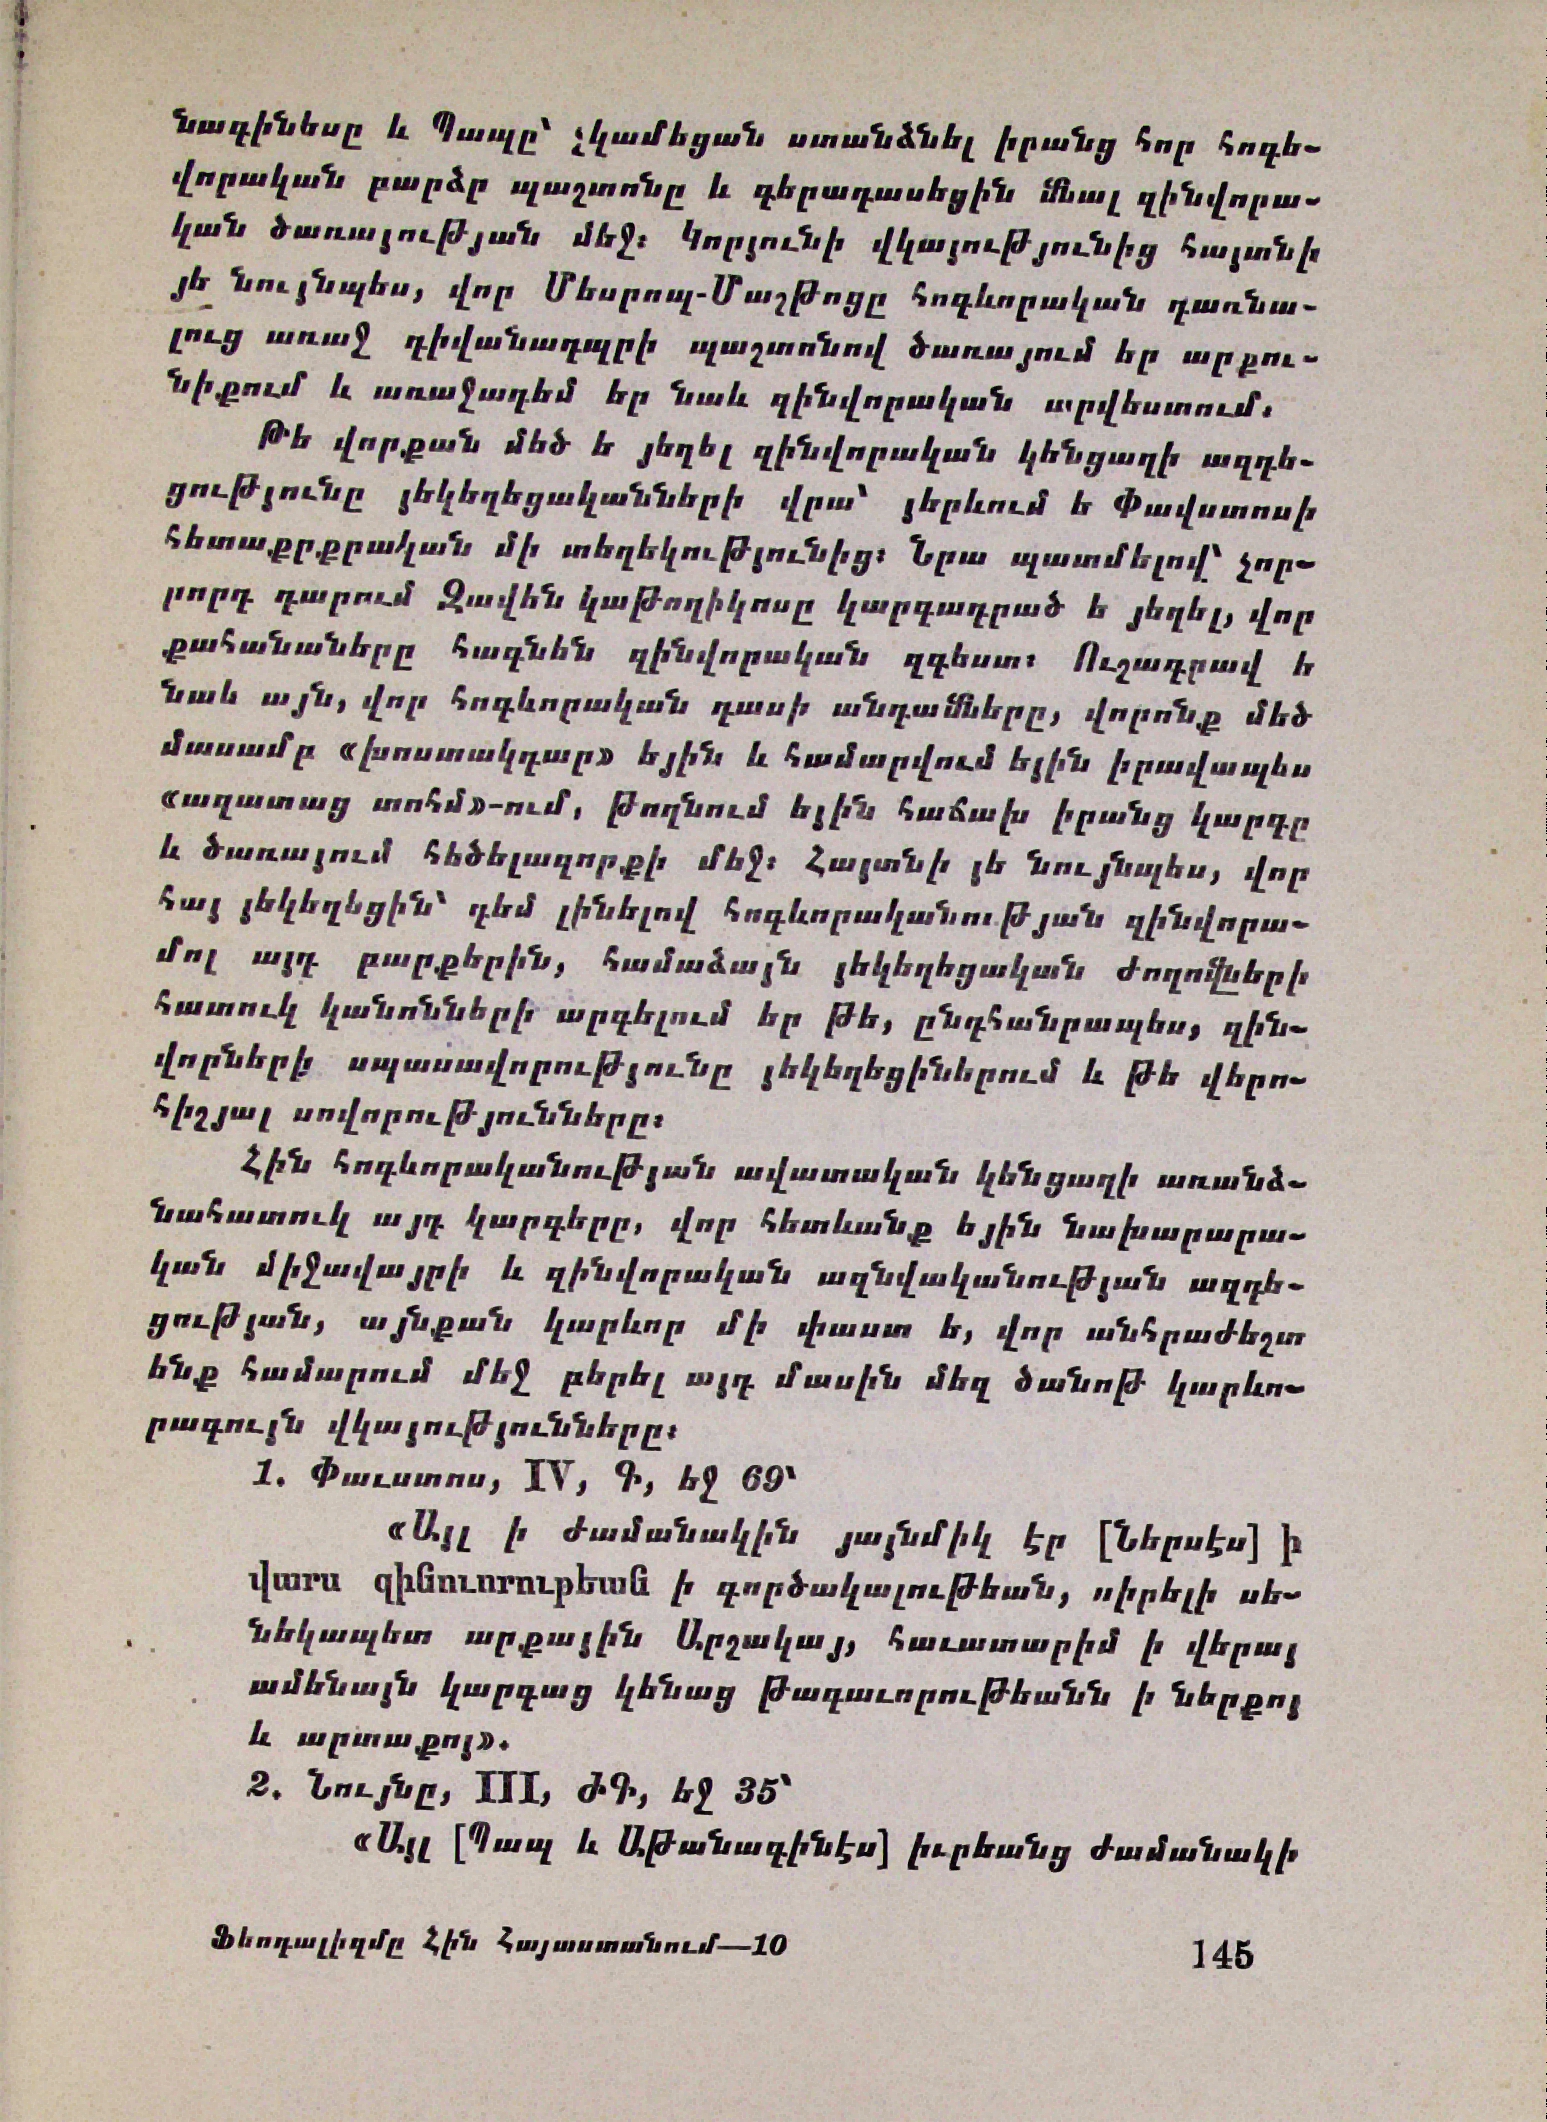 նագինեսը և Պապը՝ չկամեցան ստանձնել իրանց հոր հոգե-
վորական բարձր պաշտոնը և գերադասեցին մնալ զինվորա-
կան ծառայության մեջ։ Կորյունի վկայությունից հայտնի
յե նույնպես, վոր Մեսրոպ-Մաշթոցը հոգևորական դառնա-
լուց առաջ դիվանադպրի պաշտոնով ծառայում եր արքու-
նիքում և առաջադեմ եր նաև զինվորական արվեստում։
Թե վորքան մեծ ե յեղել զինվորական կենցաղի ազդե-
ցությունը յեկեղեցականների վրա՝ յերևում ե Փավստոսի
հետաքրքրական մի տեղեկությունից։ Նրա պատմելով՝ չոր-
րորդ դարում Զավեն կաթողիկոսը կարգադրած ե յեղել, վոր
քահանաները հագնեն զինվորական զգեստ։ Ուշագրավ ե
նաև այն, վոր հոգևորական դասի անդամները, վորոնք մեծ
մասամբ «խոստակդար» եյին և համարվում եյին իրավապես
«ազատաց տոհմ»-ում, թողնում եյին հաճախ իրանց կարգը
և ծառայում հեծելազորքի մեջ։ Հայտնի յե նույնպես, վոր
հայ յեկեղեցին՝ դեմ լինելով հոգևորականության զինվորա-
մոլ այդ բարքերին, համաձայն յեկեղեցական ժողովների
հատուկ կանոնների արգելում եր թե, ընդհանրապես, զին-
վորների սպասավորությունը յեկեղեցիներում և թե վերո-
հիշյալ սովորությունները։
Հին հոգևորականության ավատական կենցաղի առանձ-
նահատուկ այդ կարգերը, վոր հետևանք եյին նախարարա-
կան միջավայրի և զինվորական ազնվականության ազդե-
ցության, այնքան կարևոր մի փաստ ե, վոր անհրաժեշտ
ենք համարում մեջ բերել այդ մասին մեզ ծանոթ կարևո-
րագույն վկայությունները։
1. Փաւստոս, IV, Գ, եջ 69՝
«Այլ ի ժամանակին յայնմիկ էր [Ներսէս] ի
վարս զինուորութեան ի գործակալութեան, սիրելի սե-
նեկապետ արքային Արշակայ, հաւատարիմ ի վերայ
ամենայն կարգաց կենաց թագաւորութեանն ի ներքոյ
և արտաքոյ».
2. Նույնը, III, ԺԳ, եջ 35՝
«Այլ [Պապ և Աթանագինէս] իւրեանց ժամանակի
Ֆեոդալիզմը Հին Հայաստանում—10
145